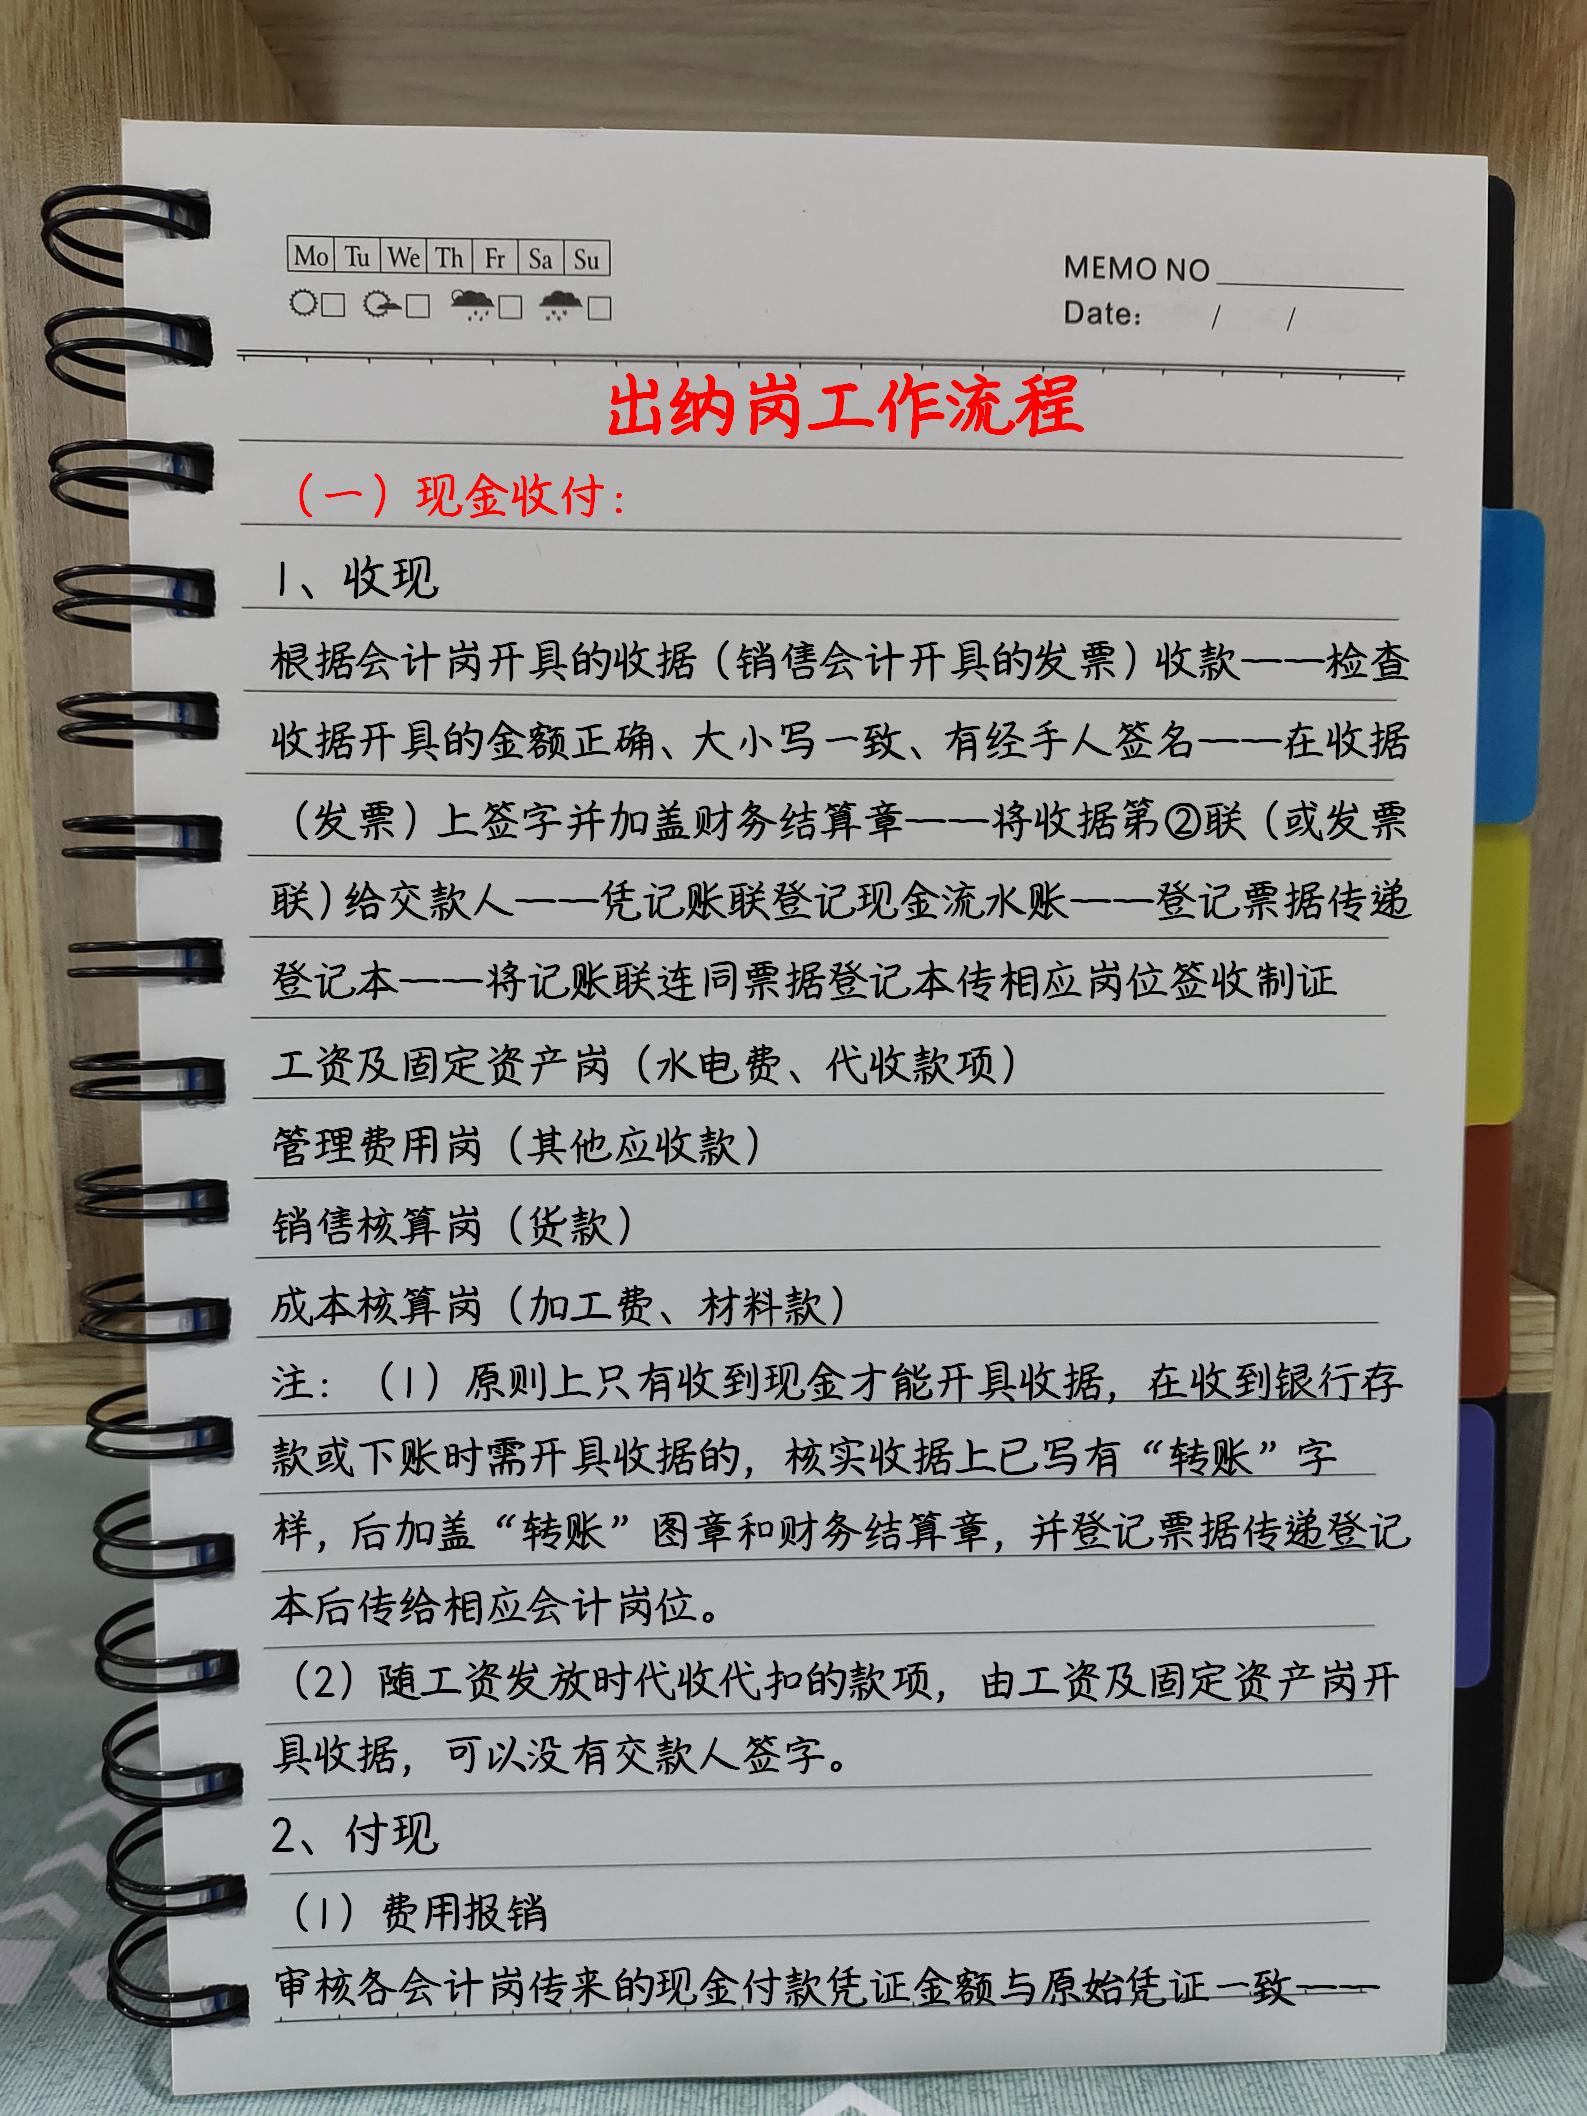 Mo Tu We Th Fr Sa Su
MEMO NO
Date: / /
出纳岗工作流程
（一）现金收付：
1、收现
根据会计岗开具的收据（销售会计开具的发票）收款——检查
收据开具的金额正确、大小写一致、有经手人签名——在收据
（发票）上签字并加盖财务结算章——将收据第②联（或发票
联）给交款人——凭记账联登记现金流水账——登记票据传递
登记本——将记账联连同票据登记本传相应岗位签收制证
工资及固定资产岗（水电费、代收款项）
管理费用岗（其他应收款）
销售核算岗（货款）
成本核算岗（加工费、材料款）
注：（1）原则上只有收到现金才能开具收据，在收到银行存
款或下账时需开具收据的，核实收据上已写有“转账”字
样，后加盖“转账”图章和财务结算章，并登记票据传递登记
本后传给相应会计岗位。
（2）随工资发放时代收代扣的款项，由工资及固定资产岗开
具收据，可以没有交款人签字。
2、付现
（1）费用报销
审核各会计岗传来的现金付款凭证金额与原始凭证一致——